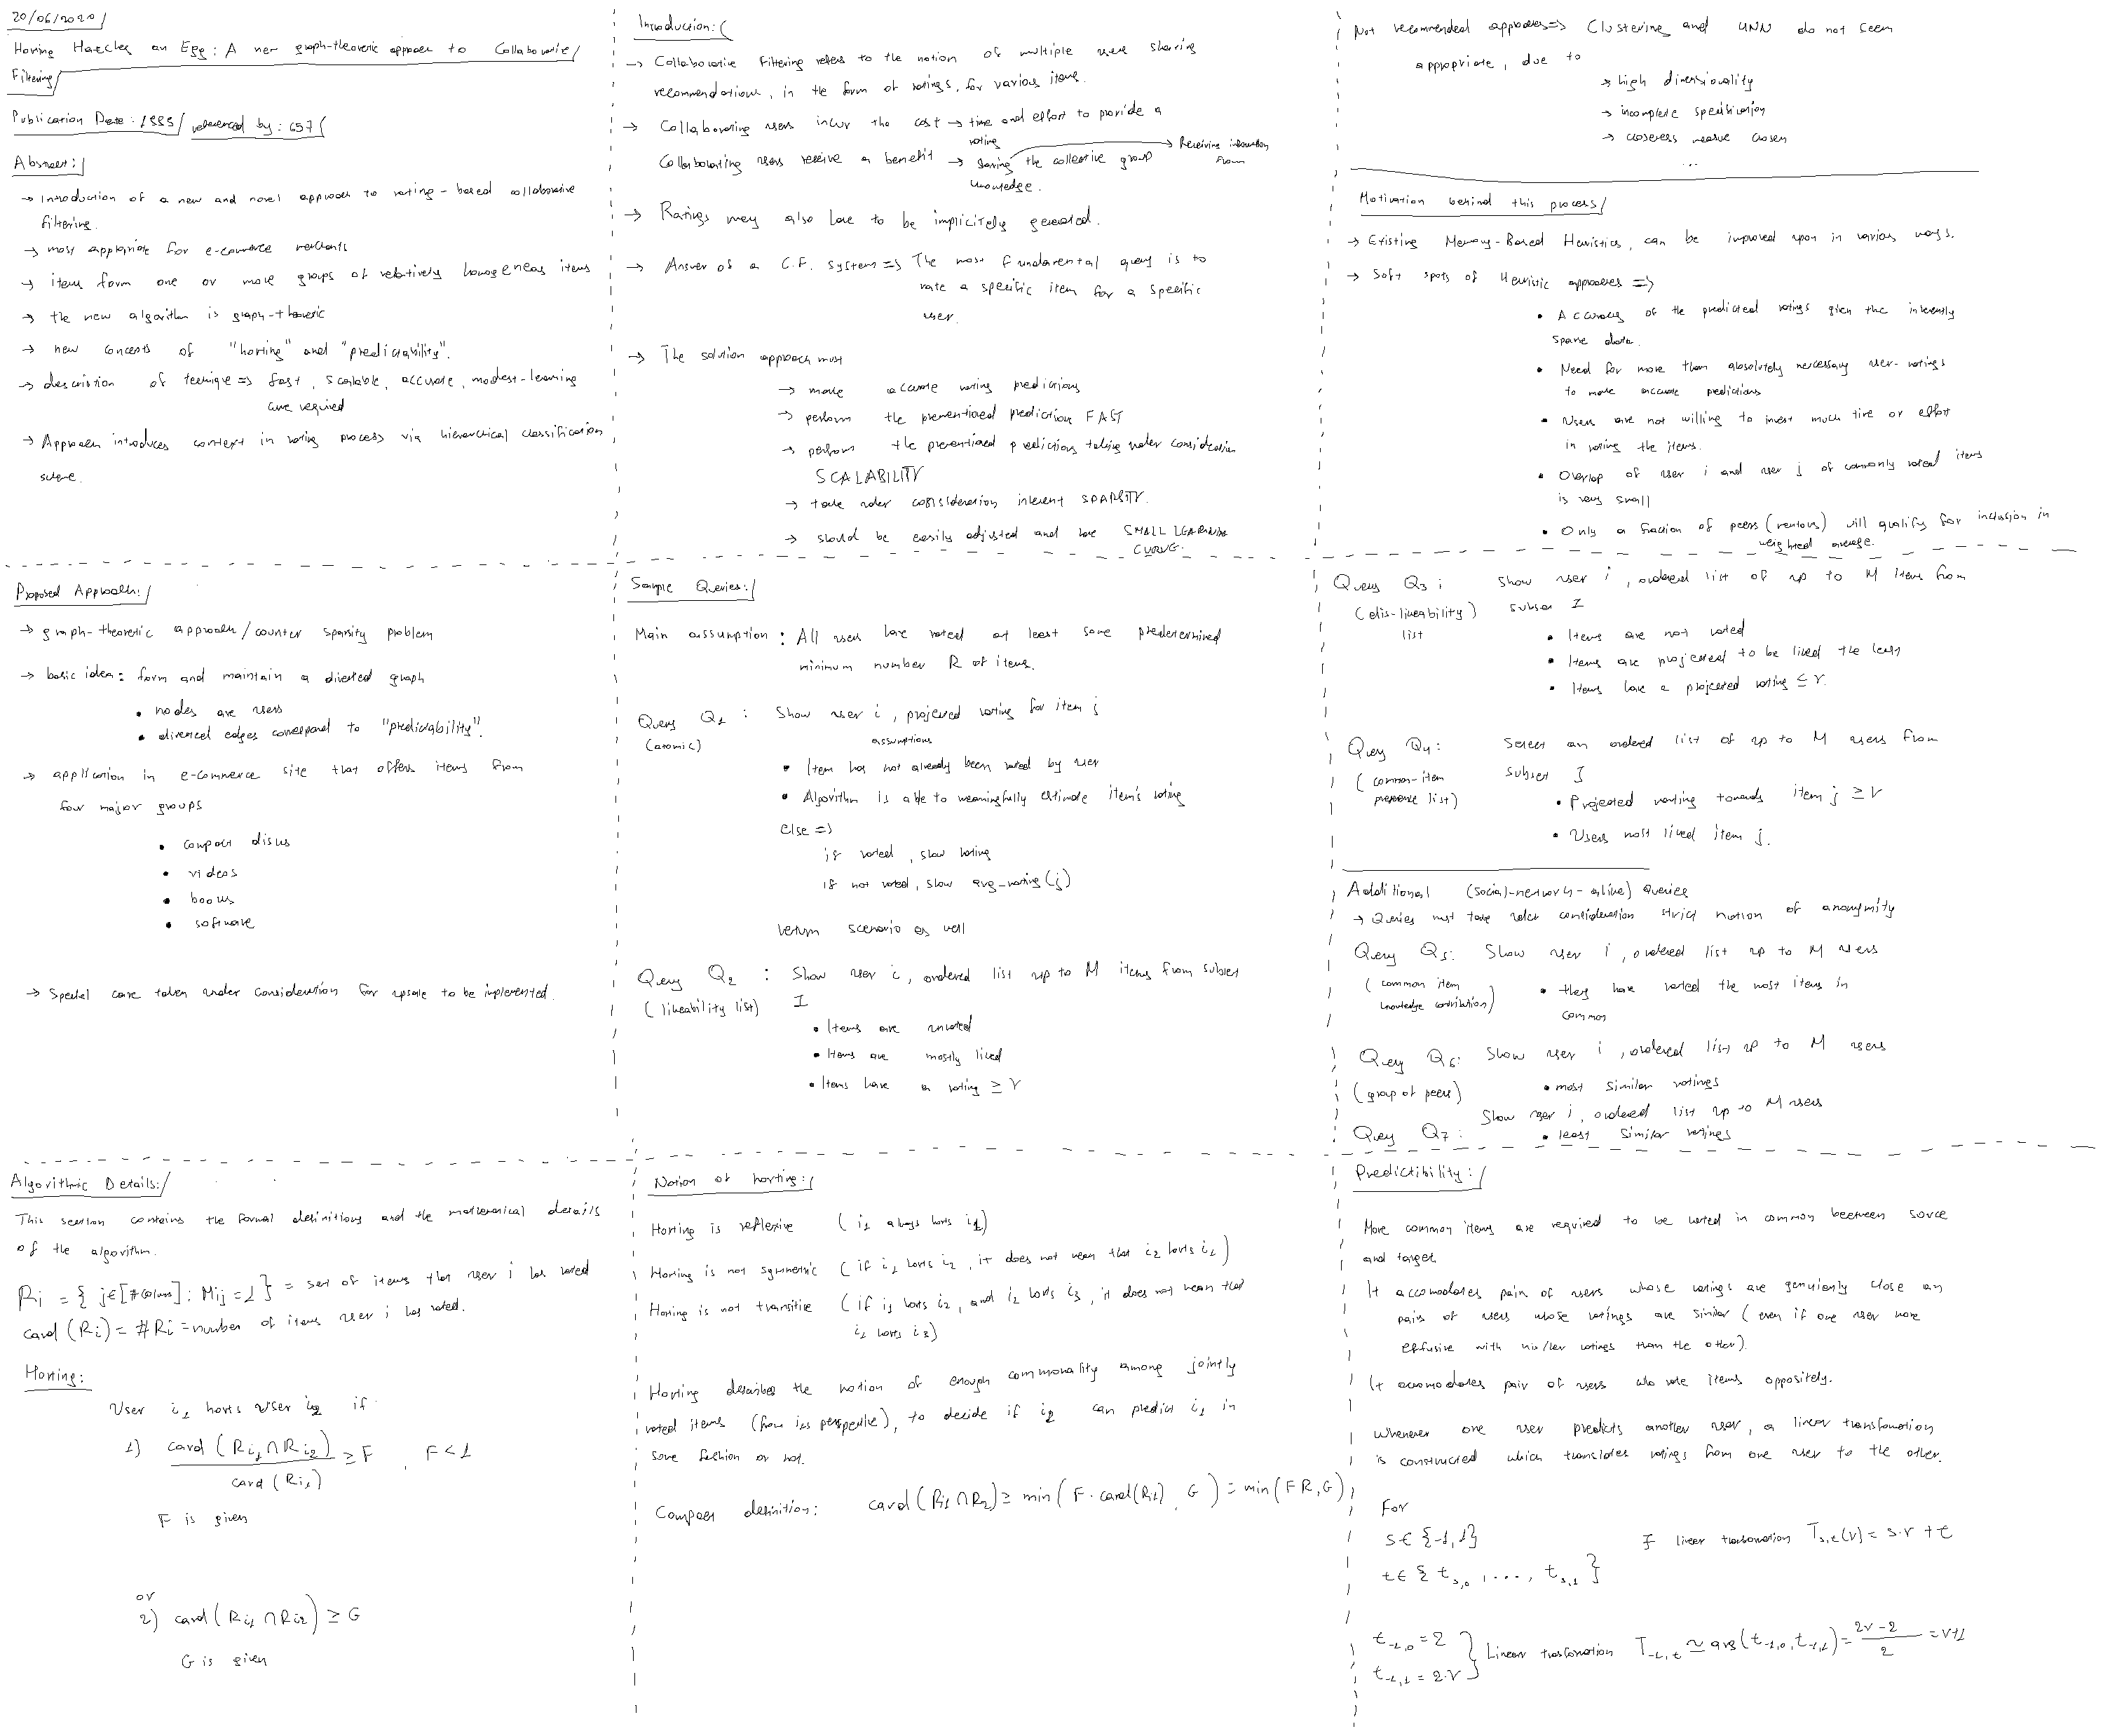 20/06/2020/
Horting Hatches an Egg: A new graph-theoretic approach to Collaborative/
Filtering/
Publication Date: 1999/ referenced by: 657/
Abstract:/
→ Introduction of a new and novel approach to rating-based collaborative
filtering.
→ most appropriate for e-commerce merchants
→ items form one or more groups of relatively homogeneous items
→ the new algorithm is graph-theoretic
→ new concepts of "horting" and "predictability".
→ description of technique => fast, scalable, accurate, modest-learning
are required
→ Approach introduces context in rating process via hierarchical classification
scheme.
Introduction:/
→ Collaborative Filtering refers to the notion of multiple users sharing
recommendations, in the form of ratings, for various items.
→ Collaborating users incur the cost → time and effort to provide a
rating
Collaborating users receive a benefit → sharing the collective group → Receiving information
knowledge. from
→ Ratings may also have to be implicitely generated.
→ Answer of a C.F. system => The most fundamental query is to
rate a specific item for a specific
user.
→ The solution approach must
→ make accurate rating predictions
→ perform the prementioned predictions FAST
→ perform the prementioned predictions taking under consideration
SCALABILITY
→ take under consideration inherent SPARSITY.
→ should be easily adjusted and have SMALL LEARNING
CURVE.
Not recommended approaches => Clustering and kNN do not seem
appropriate, due to
→ high dimensionality
→ incomplete specification
→ closeness measure chosen
...
Motivation behind this process/
→ Existing Memory-Based Heuristics, can be improved upon in various ways.
→ Soft spots of Heuristic approaches =>
• Accuracy of the predicted ratings given the inherently
sparse data.
• Need for more than absolutely necessary user-ratings
to make accurate predictions
• Users are not willing to invest much time or effort
in rating the items.
• Overlap of user i and user j of commonly rated items
is very small
• Only a fraction of peers (mentors) will qualify for inclusion in
weighted average.
Proposed Approach:/
→ graph-theoretic approach/counter sparsity problem
→ basic idea: form and maintain a directed graph
• nodes are users
• directed edges correspond to "predictability".
→ application in e-commerce site that offers items from
four major groups
• compact disks
• videos
• books
• software
→ Special care taken under consideration for upsale to be implemented.
Sample Queries:/
Main assumption: All users have rated at least some predetermined
minimum number R of items.
Query Q1: Show user i, projected rating for item j
(atomic) assumptions
• Item has not already been rated by user
• Algorithm is able to meaningfully estimate item's rating
else =>
if rated, show rating
if not rated, show avg_rating(j)
return scenario as well
Query Q2: Show user i, ordered list up to M items from subset
(likeability list) I
• Items are unrated
• Items are mostly liked
• Items have a rating ≥ r
Query Q3: Show user i, ordered list of up to M items from
(dis-likeability) subset I
list
• Items are not rated
• Items are projected to be liked the least
• Items have a projected rating ≤ r.
Query Q4: Select an ordered list of up to M users from
(common-item subset J
presence list)
• Projected rating towards item j ≥ r
• Users most liked item j.
Additional (social-network-alike) queries
→ Queries must take under consideration strict notion of anonymity
Query Q5: Show user i, ordered list up to M users
(common item • they have rated the most items in
knowledge contribution) common
Query Q6: Show user i, ordered list up to M users
(group of peers) • most similar ratings
Show user i, ordered list up to M users
Query Q7: • least similar ratings
Algorithmic Details:/
This section contains the formal definitions and the mathematical details
of the algorithm.
Ri = { j∈[#Columns] : Mij = 1 } = set of items that user i has rated
card(Ri) = #Ri = number of items user i has rated.
Horting:
User i1 horts user i2 if
1) card(Ri1 ∩ Ri2) / card(Ri1) ≥ F , F < 1
F is given
or
2) card(Ri1 ∩ Ri2) ≥ G
G is given
Notion of horting:/
Horting is reflexive (i1 always horts i1)
Horting is not symmetric (if i1 horts i2, it does not mean that i2 horts i1)
Horting is not transitive (if i1 horts i2, and i2 horts i3, it does not mean that
i1 horts i3)
Horting describes the notion of enough commonality among jointly
rated items (from i1s perspective), to decide if i2 can predict i1 in
some fashion or not.
Compact definition: card(Ri1 ∩ R2) ≥ min(F·card(Ri1), G) = min(FR, G)
Predictibility:/
More common items are required to be rated in common beetween source
and target
It accomodates pair of users whose ratings are genuienly close an
pairs of users whose ratings are similar (even if one user more
effusive with his/her ratings than the other).
It accomodates pair of users who rate items oppositely.
Whenever one user predicts another user, a linear transformation
is constructed which translates ratings from one user to the other.
For
s ∈ {-1, 1} ∃ linear transformation Ts,t(r) = s·r + t
t ∈ { ts,0 , ..., ts,1 }
t-1,0 = 2
t-1,1 = 2·r } Linear trasformation T-1,t ≃ avg(t-1,0, t-1,1) = 2r-2 / 2 = r+1